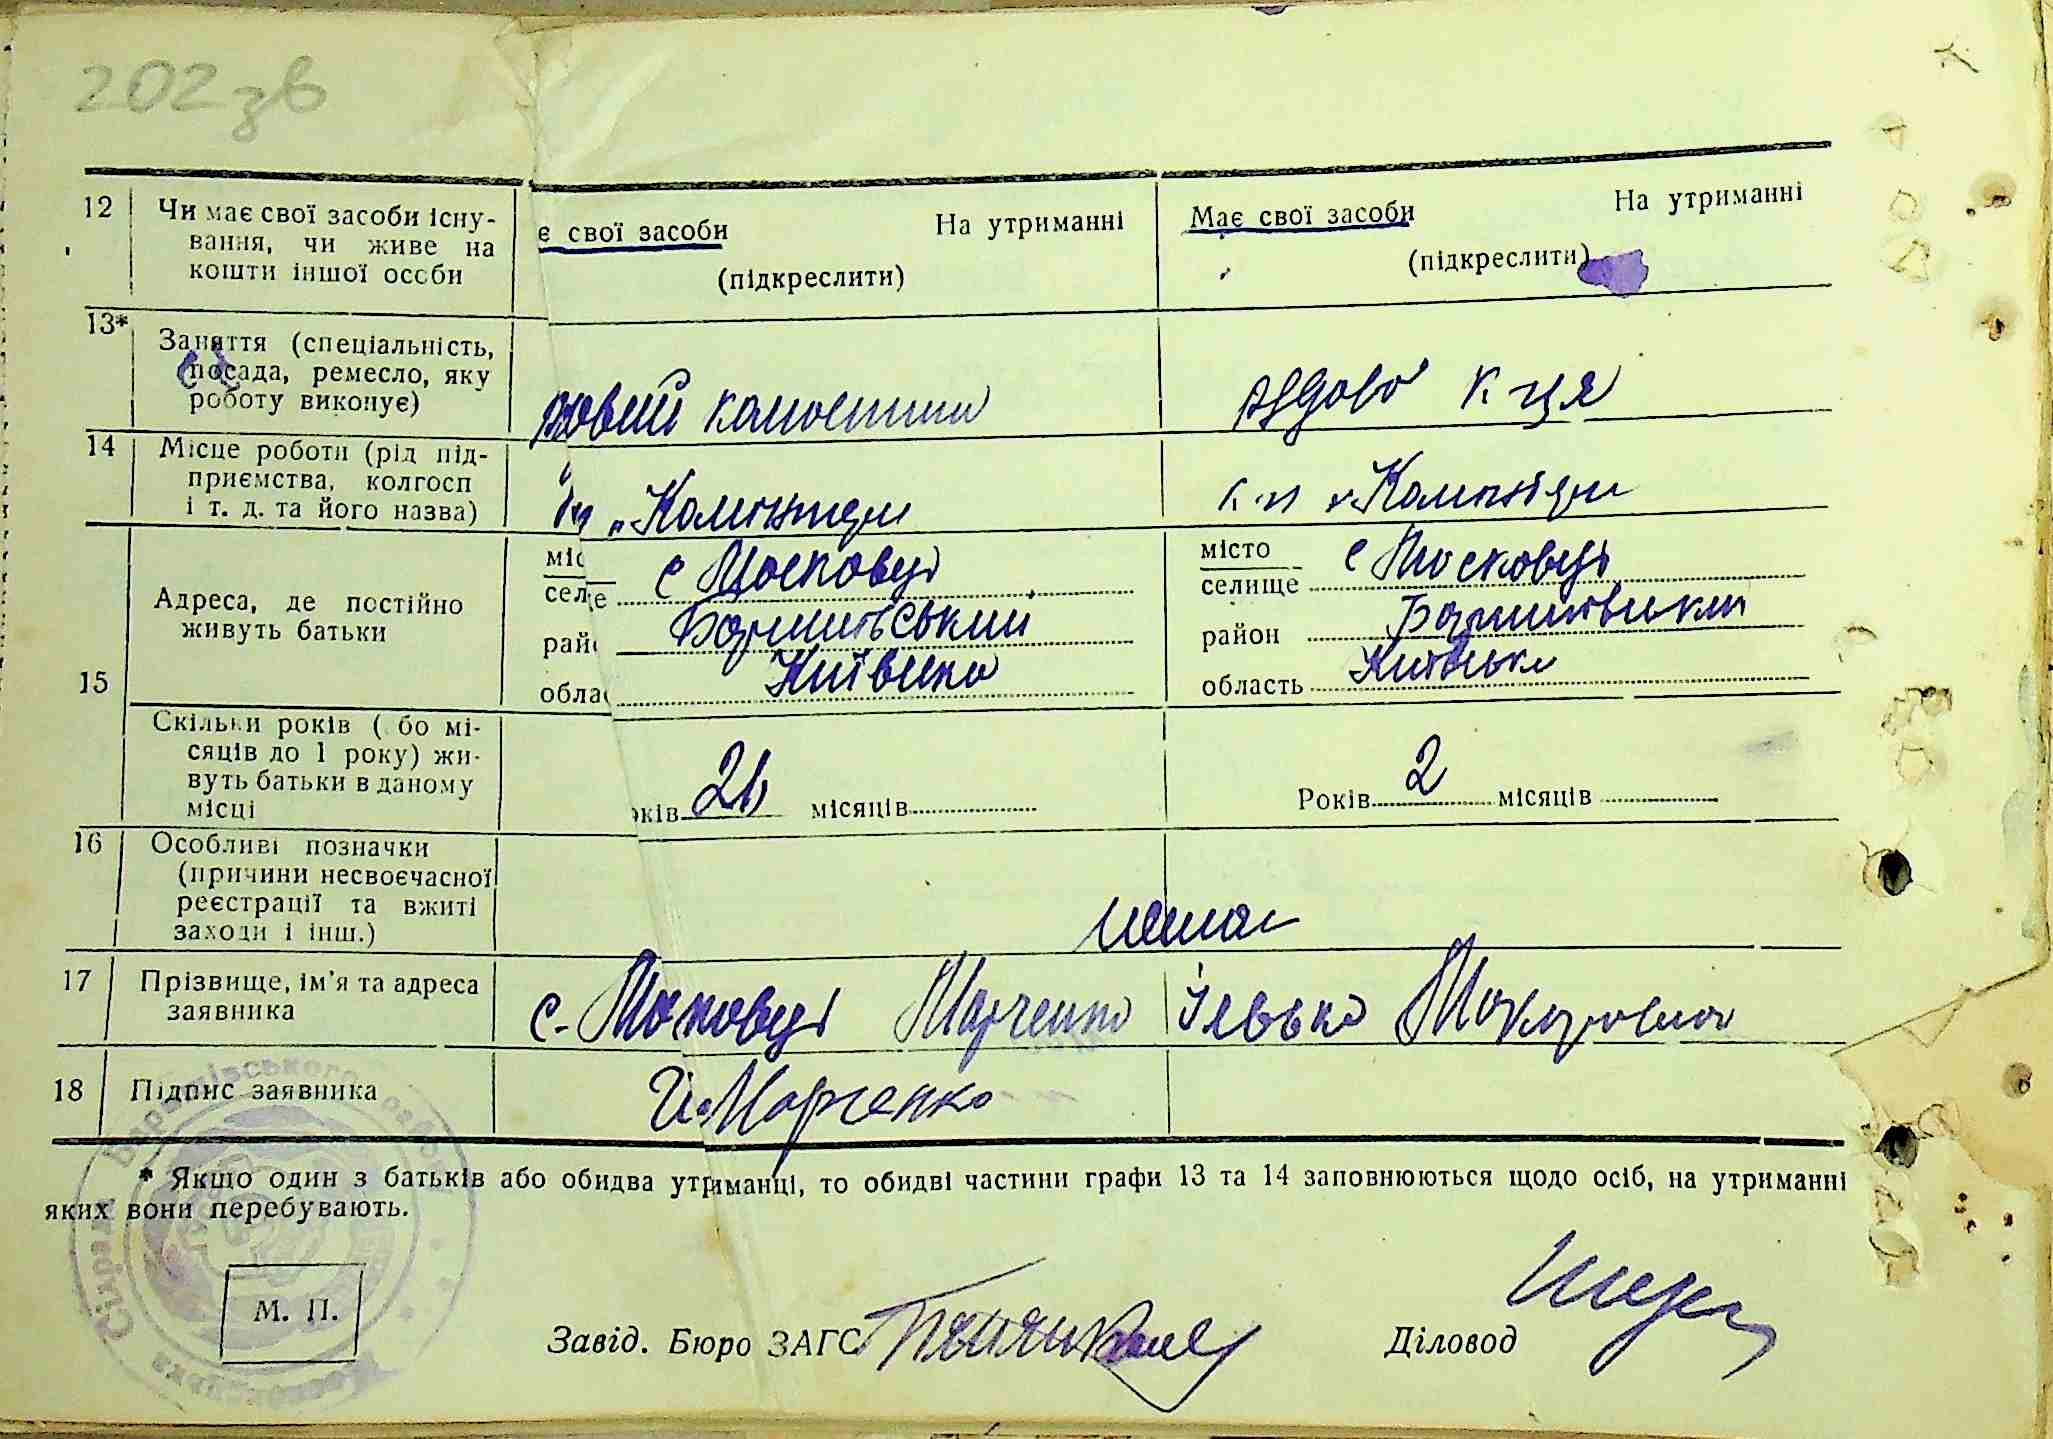 202 зв
12 Чи має свої засоби існу-
вання, чи живе на
кошти іншої особи
є свої засоби На утриманні
(підкреслити)
Має свої засоби На утриманні
(підкреслити)
13* Заняття (спеціальність,
посада, ремесло, яку
роботу виконує)
14 Місце роботи (рід під-
приємства, колгосп
і т. д. та його назва)
„Комінтерн
к-п „Комінтерн
15 Адреса, де постійно
живуть батьки
міс
селе с Масковці
райо Баришівський
облас Київська
місто
селище с Масковці
район Баришівський
область Київська
Скільки років ( бо мі-
сяців до 1 року) жи-
вуть батьки в даному
місці
років 26 місяців
Років 2 місяців
16 Особливі позначки
(причини несвоєчасної
реєстрації та вжиті
заходи і інш.)
немає
17 Прізвище, ім'я та адреса
заявника
с. Масковці Марченко Ілько Макарович
18 Підпис заявника
І. Марченко
* Якщо один з батьків або обидва утриманці, то обидві частини графи 13 та 14 заповнюються щодо осіб, на утриманні
яких вони перебувають.
М. П.
Завід. Бюро ЗАГС
Діловод